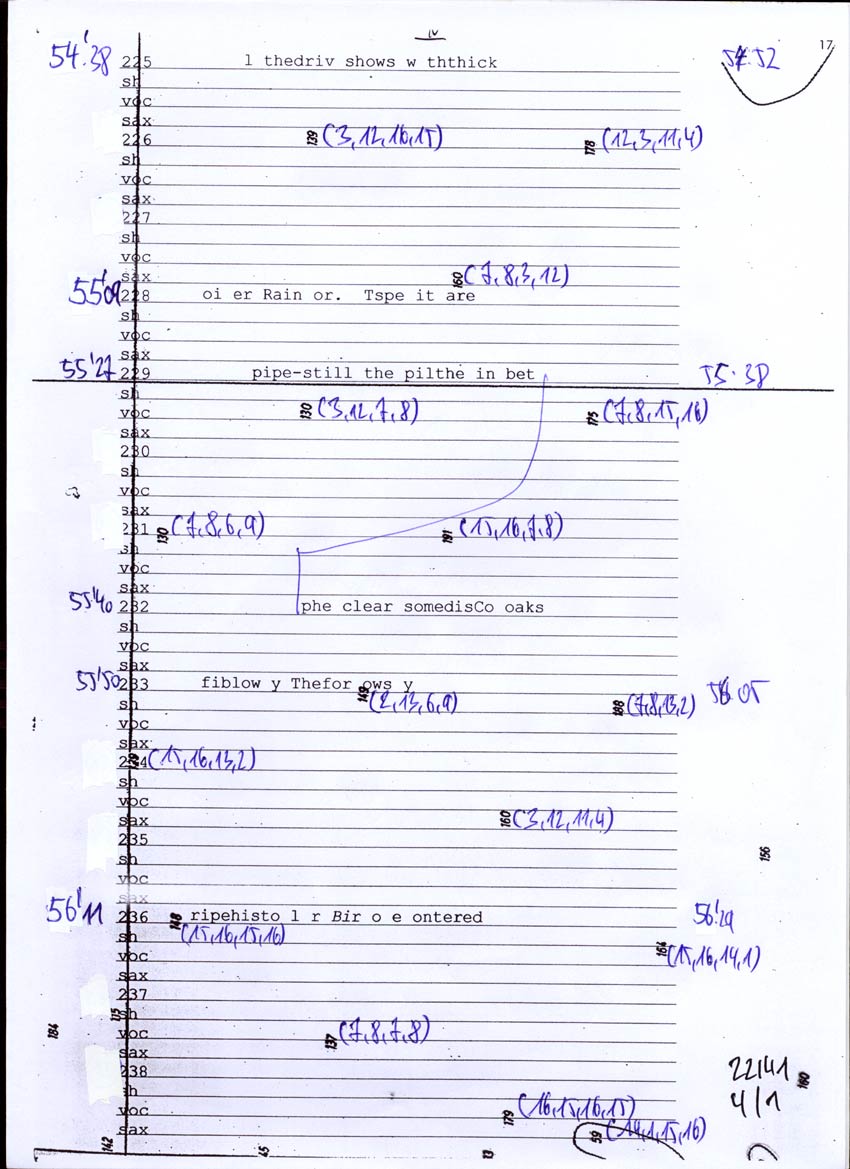 IV
17
54'38 225 l thedriv shows w ththick 54'52
sh
voc
sax
226 139 (3,12,16,15) 178 (12,3,11,4)
sh
voc
sax
227
sh
voc
sax 160 (7,8,3,12)
55'09 228 oi er Rain or. Tspe it are
sh
voc
sax
55'27 229 pipe-still the pilthe in bet 55'38
sh
voc 130 (3,12,7,8) 175 (7,8,15,16)
sax
230
sh
voc
sax
231 130 (7,8,6,9) 191 (15,16,7,8)
sh
voc
sax
55'40 232 phe clear somedisCo oaks
sh
voc
sax
55'50 233 fiblow y Thefor ows y 56'05
sh 149 (2,13,6,9) 188 (7,8,13,2)
voc
sax
234 (15,16,13,2)
sh
voc
sax 160 (3,12,11,4)
235
sh 156
voc
sax
56'11 236 148 ripehisto l r Bir o e ontered 56'29
sh (15,16,15,16)
voc 164 (15,16,14,1)
sax
237
sh 115
voc 184 137 (7,8,7,8)
sax
238 22/41 160
sh 4/1
voc 179 (16,15,16,15)
sax 59 (14,1,15,16)
142 45 13